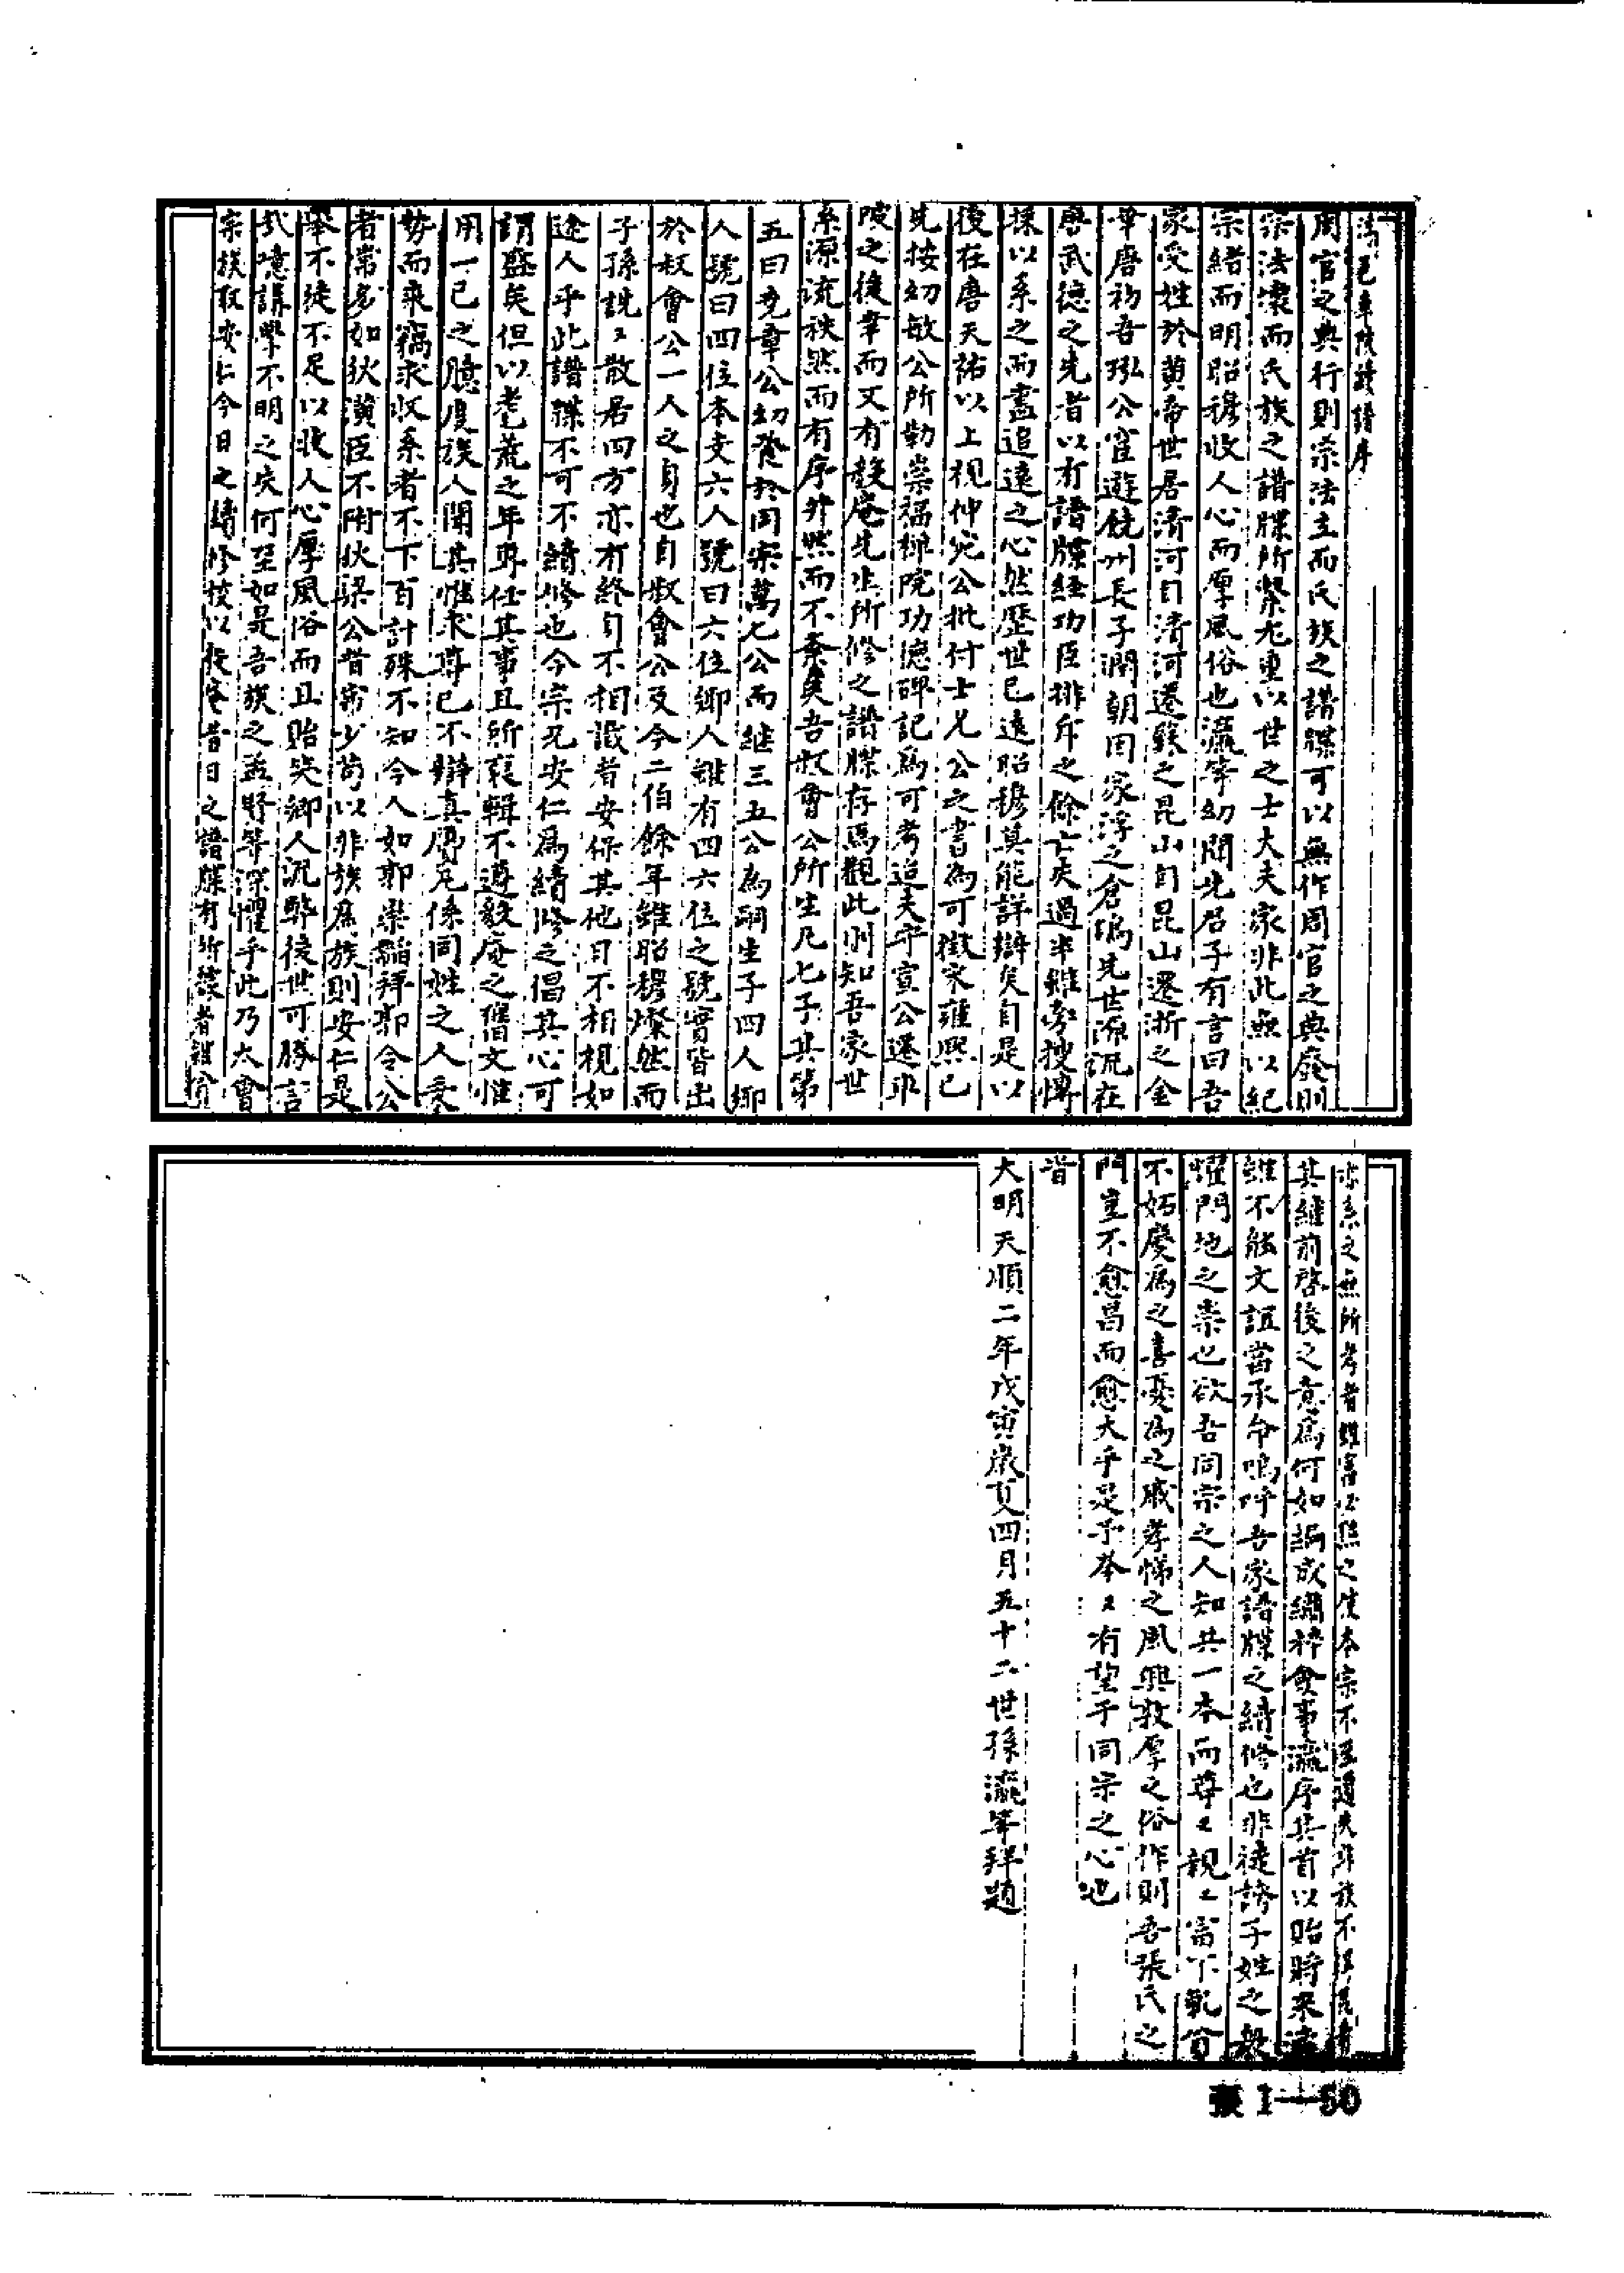 邑車陂譜序
周官之典行則宗法立而氏族之譜牒可以無作周官之典廢則
宗法壞而氏族之譜牒所繫尤重以世之士大夫家非此無以紀
宗緒而明昭穆收人心而厚風俗也瀛等幼聞先君子有言曰吾
家受姓於黄帝世居清河自清河遷蘇之昆山自昆山遷浙之金
華唐初吾公宦遊饒州長子潤朝因家浮之倉塢先世源流在
唐武德之先者以有譜牒経功臣排斥之餘亡失過半雖旁搜博
採以系之而盡追遠之心然歷世已遠昭穆莫能詳辯矣自是以
後在唐天祐以上視仲宛公批付士兄公之書為可徵宋雍熙已
先按幼敏公所勒崇福禪院功德碑記為可考迨夫平宣公遷車
陂之後幸而又有毅庵先生所修之譜牒存焉觀此則知吾家世
系源流秩然而有序井然而不紊矣吾叔會公所生凡七子其第
五曰堯章公幼養於同宗萬七公而継三五公為嗣生子四人鄉
人號曰四位本支六人號曰六位鄉人雖有四六位之號實皆出
於叔會公一人之身也自叔會公及今二伯餘年雖昭穆燦然而
子孫詵〻散居四方亦有終身不相識者安保其他日不相視如
途人乎此譜牒不可不續修也今宗兄安仁為續修之倡其心可
謂盛矣但以耄荒之年耳任其事且所裒輯不遵毅庵之舊文惟
用一己之臆度族人聞其惟求尊已不辯真贋凡係同姓之人
勢而來竊求收系者不下百計殊不知今人如郭崇韜拜郭令公
者常多如狄漢臣不附狄梁公者常少苟以非族為族則安仁是
舉不徒不足以收人心厚風俗而且貽笑鄉人流弊後世可勝言
哉噫講學不明之失何至如是吾族之孟時等深懼乎此乃大會
宗族取安仁今日之續修校以毅庵昔日之譜牒有所據者雖
亦系之無所考者雖富必黜之使本宗不至遺失非族不得
其継前啓後之意為何如編成繡梓僉事瀛序其首以貽將來瀛
雖不能文誼當承命嗚呼吾家譜牒之續修也非徒誇子姓之
耀門地之崇也欲吾同宗之人知共一本而尊〻親〻富不
不妬慶為之喜憂為之戚孝悌之風興敦厚之俗作則吾張氏之
門豈不愈昌而愈大乎是予本〻有望于同宗之心也
旹
大明天順二年戊寅歲夏四月五十二世孫瀛等拜題
張1—50